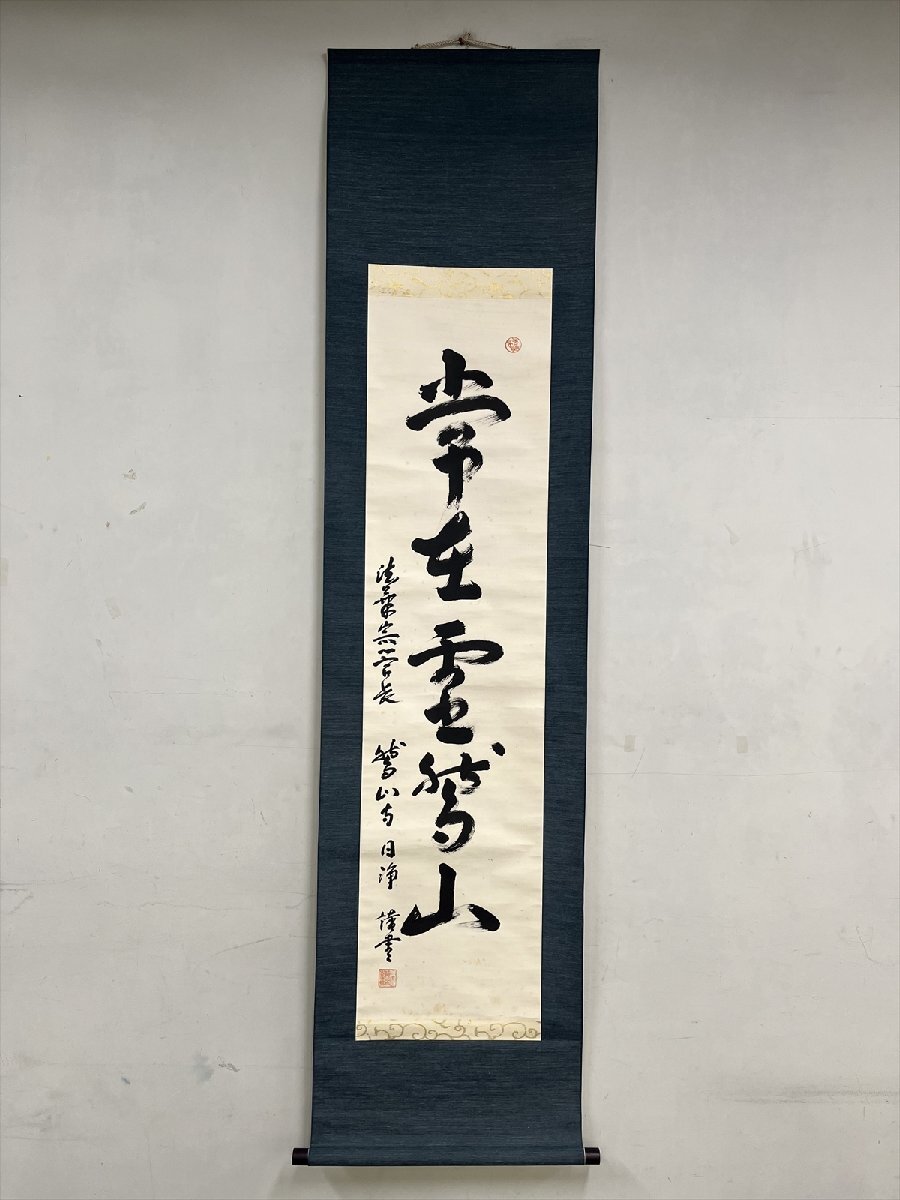 常在霊鷲山
法華宗管長 鷲山寺 日浄 謹書